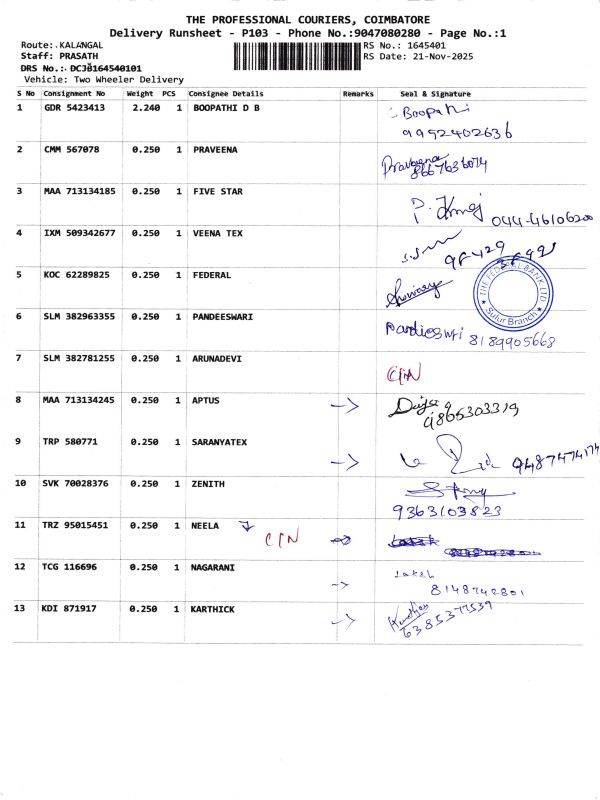 THE PROFESSIONAL COURIERS, COIMBATORE
Delivery Runsheet - P103 - Phone No.:9047080280 - Page No.:1
Route: KALANGAL RS No.: 1645401
Staff: PRASATH RS Date: 21-Nov-2025
DRS No.: DCJB164540101
Vehicle: Two Wheeler Delivery
S No Consignment No Weight PCS Consignee Details Remarks Seal & Signature
1 GDR 5423413 2.240 1 BOOPATHI D B Boopathi
9992402636
2 CMM 567078 0.250 1 PRAVEENA Praveena
8667636074
3 MAA 713134185 0.250 1 FIVE STAR 044-46106200
4 IXM 509342677 0.250 1 VEENA TEX
5 KOC 62289825 0.250 1 FEDERAL
THE FEDERAL BANK LTD
Sulur Branch
6 SLM 382963355 0.250 1 PANDEESWARI 8189905668
7 SLM 382781255 0.250 1 ARUNADEVI C/N
8 MAA 713134245 0.250 1 APTUS
9865303319
9 TRP 580771 0.250 1 SARANYATEX 9487474174
10 SVK 70028376 0.250 1 ZENITH
9363103823
11 TRZ 95015451 0.250 1 NEELA C/N
12 TCG 116696 0.250 1 NAGARANI
8148742801
13 KDI 871917 0.250 1 KARTHICK
6385377539